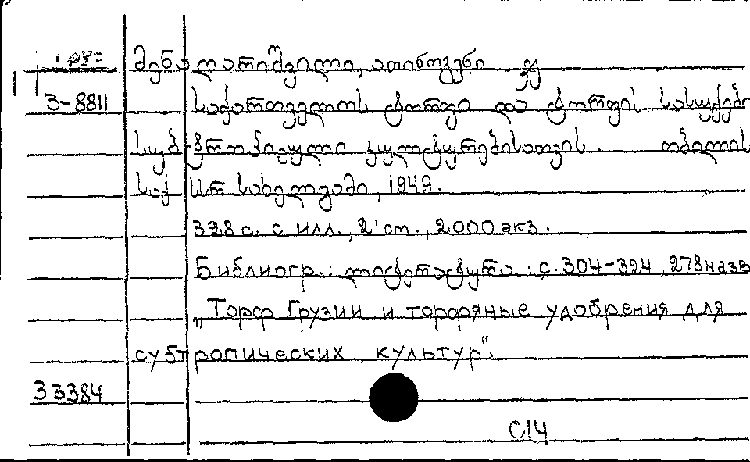 მენაღარიშვილი, ათინოგენი
3-8811 საქართველოს ტორფი და ტორფის სასუქები
სუბტროპიკული კულტურებისათვის. თბილისი
სახ. უნ. 1949.
328 с. с илл., 2 ст., 2.000 экз.
Библиогр.: ლიტერატურა: с. 304-324, 278 назв
„Торф Грузии и торфяные удобрения для
субтропических культур".
33384
С14